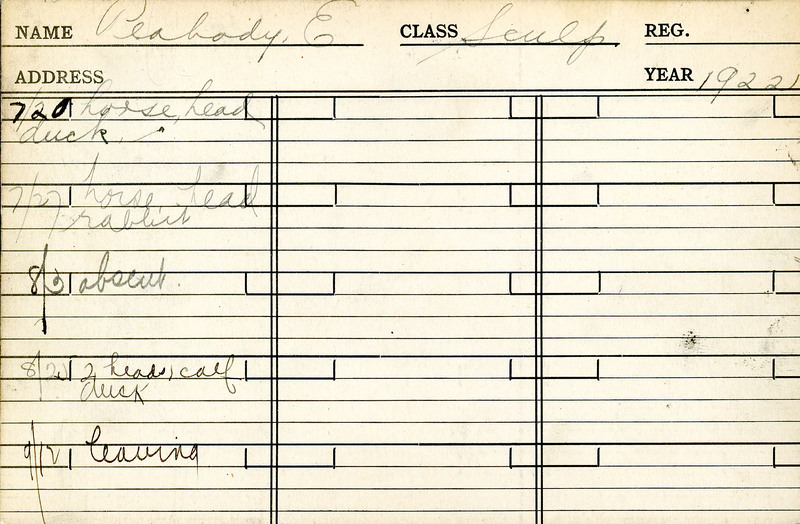 NAME Peabody, E CLASS Sculp REG.
ADDRESS YEAR 1922
7/20 horse, head
duck.
7/27 horse, head
rabbit
8/3 absent.
8/25 2 heads, calf
duck
9/12 leaving